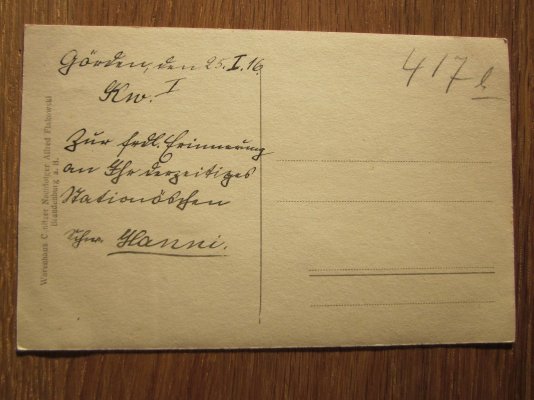 Görden, den 25.I.16.
Kw. I
Zur frdl. Erinnerung
an Ihr derzeitiges
Stationöschen
Schw. Hanni.
417
Warenhaus Conitzer Nachfolger Alfred Flakowski
Brandenburg a. H.